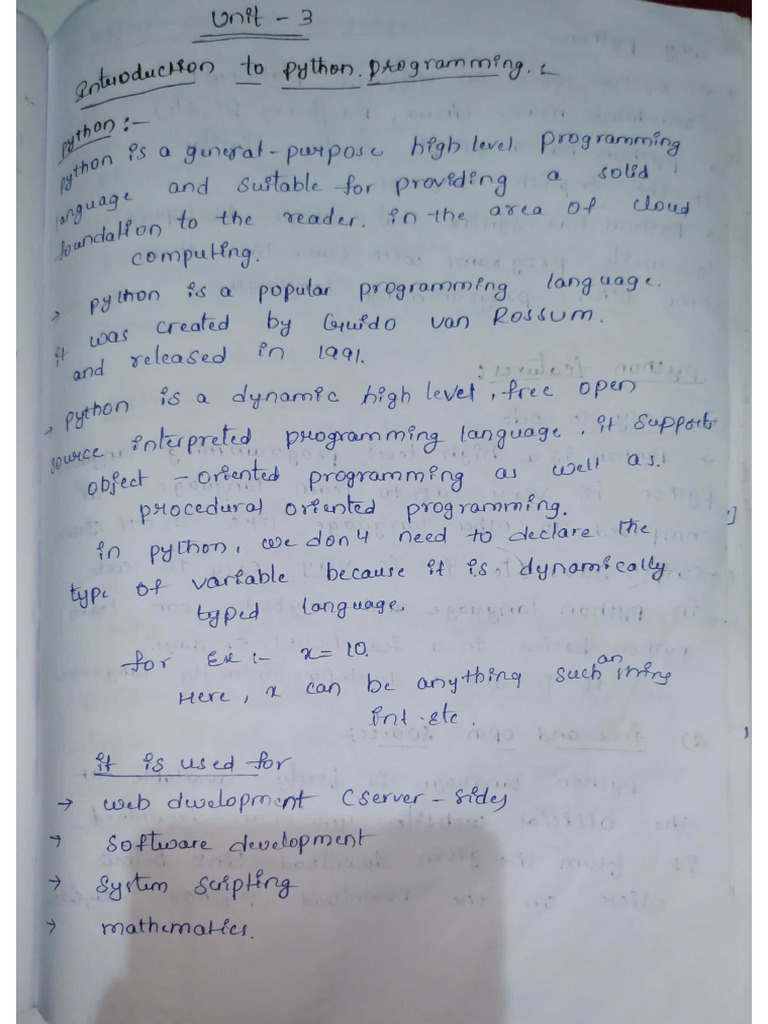 Unit - 3
Introduction to python programming. :
python :-
python is a general-purpose high level programming
language and suitable for providing a solid
foundation to the reader. in the area of cloud
computing.
→ python is a popular programming language.
it was created by Guido van Rossum.
and released in 1991.
→ python is a dynamic high level, free open
source interpreted programming language. it support
object - oriented programming as well as.
procedural oriented programming.
in python, we don't need to declare the
type of variable because it is dynamically
typed language.
for Ex :- x = 10.
Here, x can be anything such an
int. etc.
it is used for
→ web dvelopment (server - side)
→ software development
→ system scripting
→ mathematics.